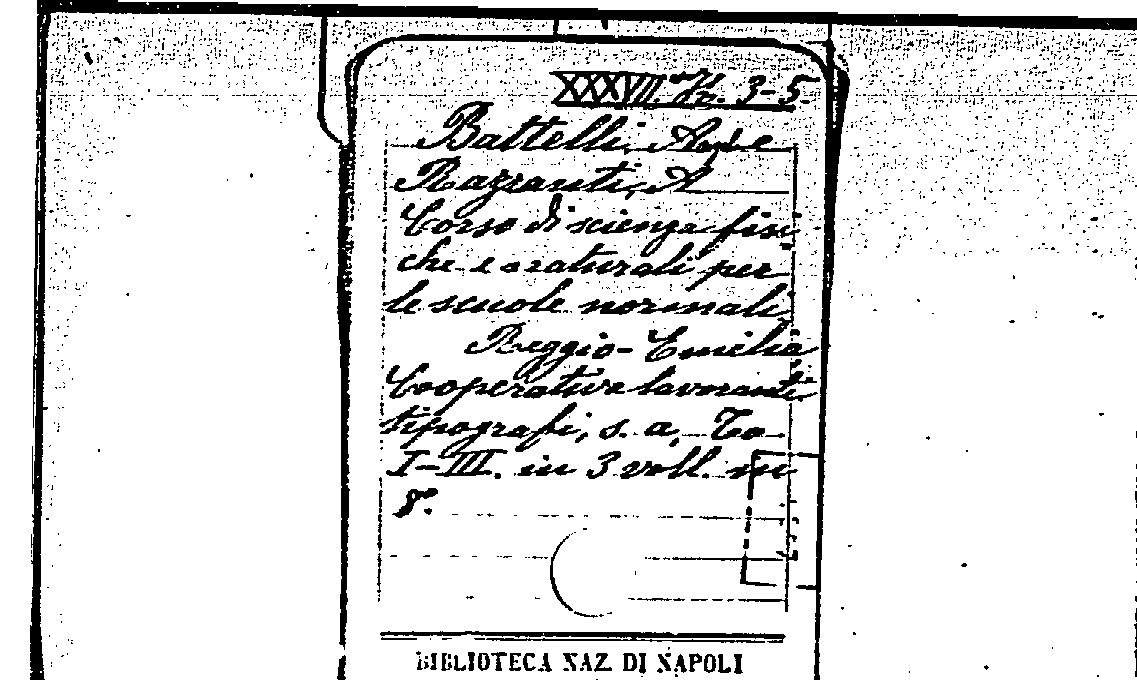 XXXVII. 3-5.
Battelli, A. e
Razzanti, A
Corso di scienze fisi
che e naturali per
le scuole normali,
Reggio-Emilia,
Cooperativa lavoranti
tipografi, s. a, To
I-III. in 3 voll. in
8°.
BIBLIOTECA NAZ. DI NAPOLI